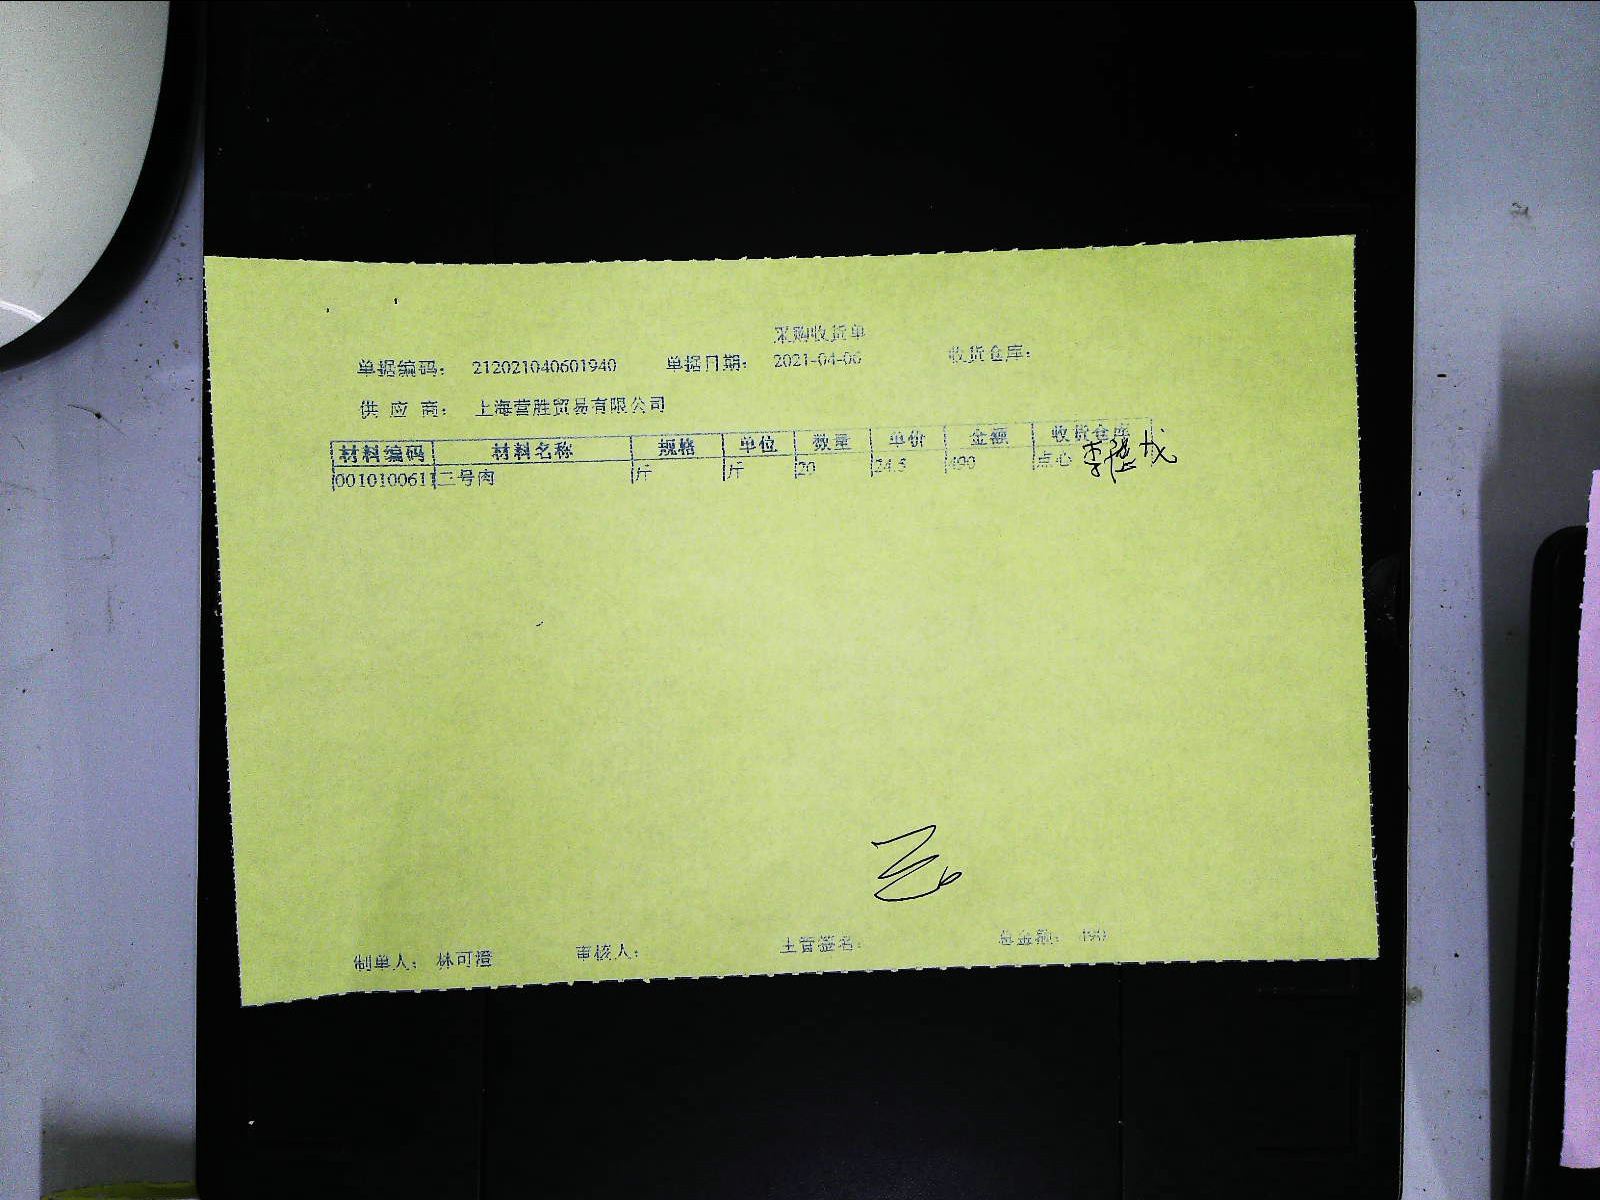 采购收货单
单据编码： 212021040601940 单据日期： 2021-04-06 收货仓库：
供 应 商： 上海营胜贸易有限公司
材料编码 材料名称 规格 单位 数量 单价 金额 收货仓库
0010100611 二号肉 斤 斤 20 24.5 490 点心
制单人： 林可澄 审核人： 主管签名： 总金额： 490